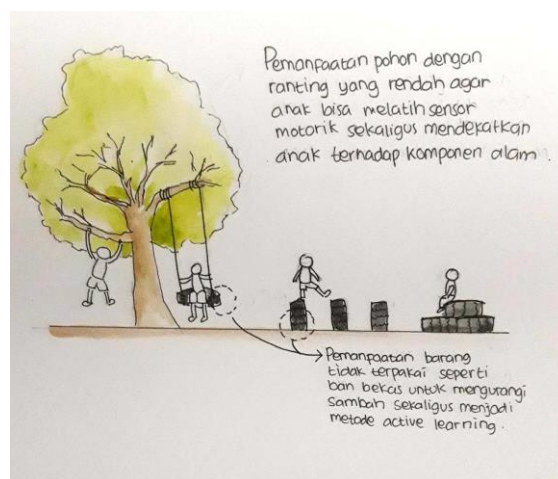 Pemanfaatan pohon dengan
ranting yang rendah agar
anak bisa melatih sensor
motorik sekaligus mendekatkan
anak terhadap komponen alam.
Pemanfaatan barang
tidak terpakai seperti
ban bekas untuk mengurangi
sambah sekaligus menjadi
metode active learning.